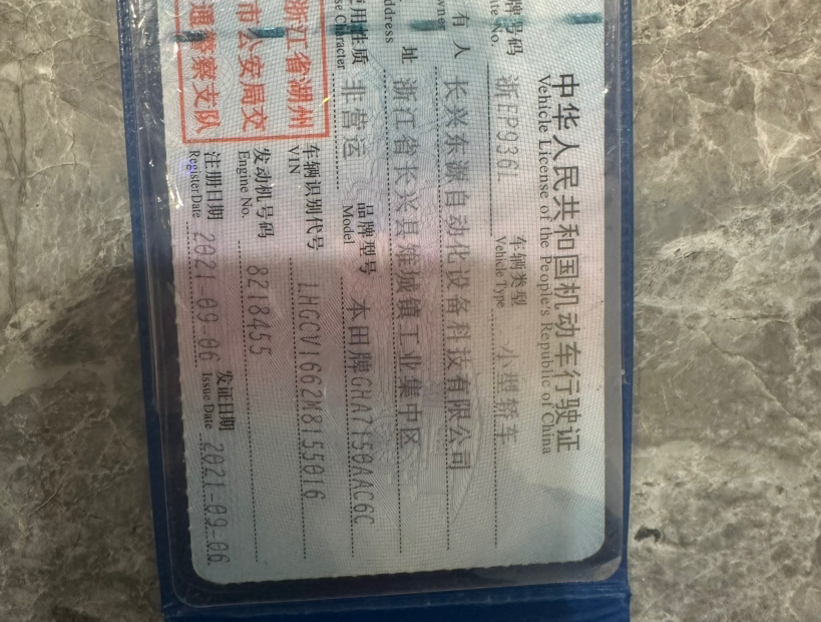 中华人民共和国机动车行驶证
Vehicle License of the People's Republic of China
牌号码 浙FP936L 车辆类型 小型轿车
ate No. Vehicle Type
有 人 长兴东源自动化设备科技有限公司
wner
址 浙江省长兴县雉城镇工业集中区
ddress
用性质 非营运 品牌型号 本田牌GHA7150AAC6C
se Character Model
浙江省湖州
市公安局交
通警察支队
车辆识别代号 LHGCV1662M8155016
VIN
发动机号码 8218455
Engine No.
注册日期 2021-09-06 发证日期 2021-09-06
Register Date Issue Date